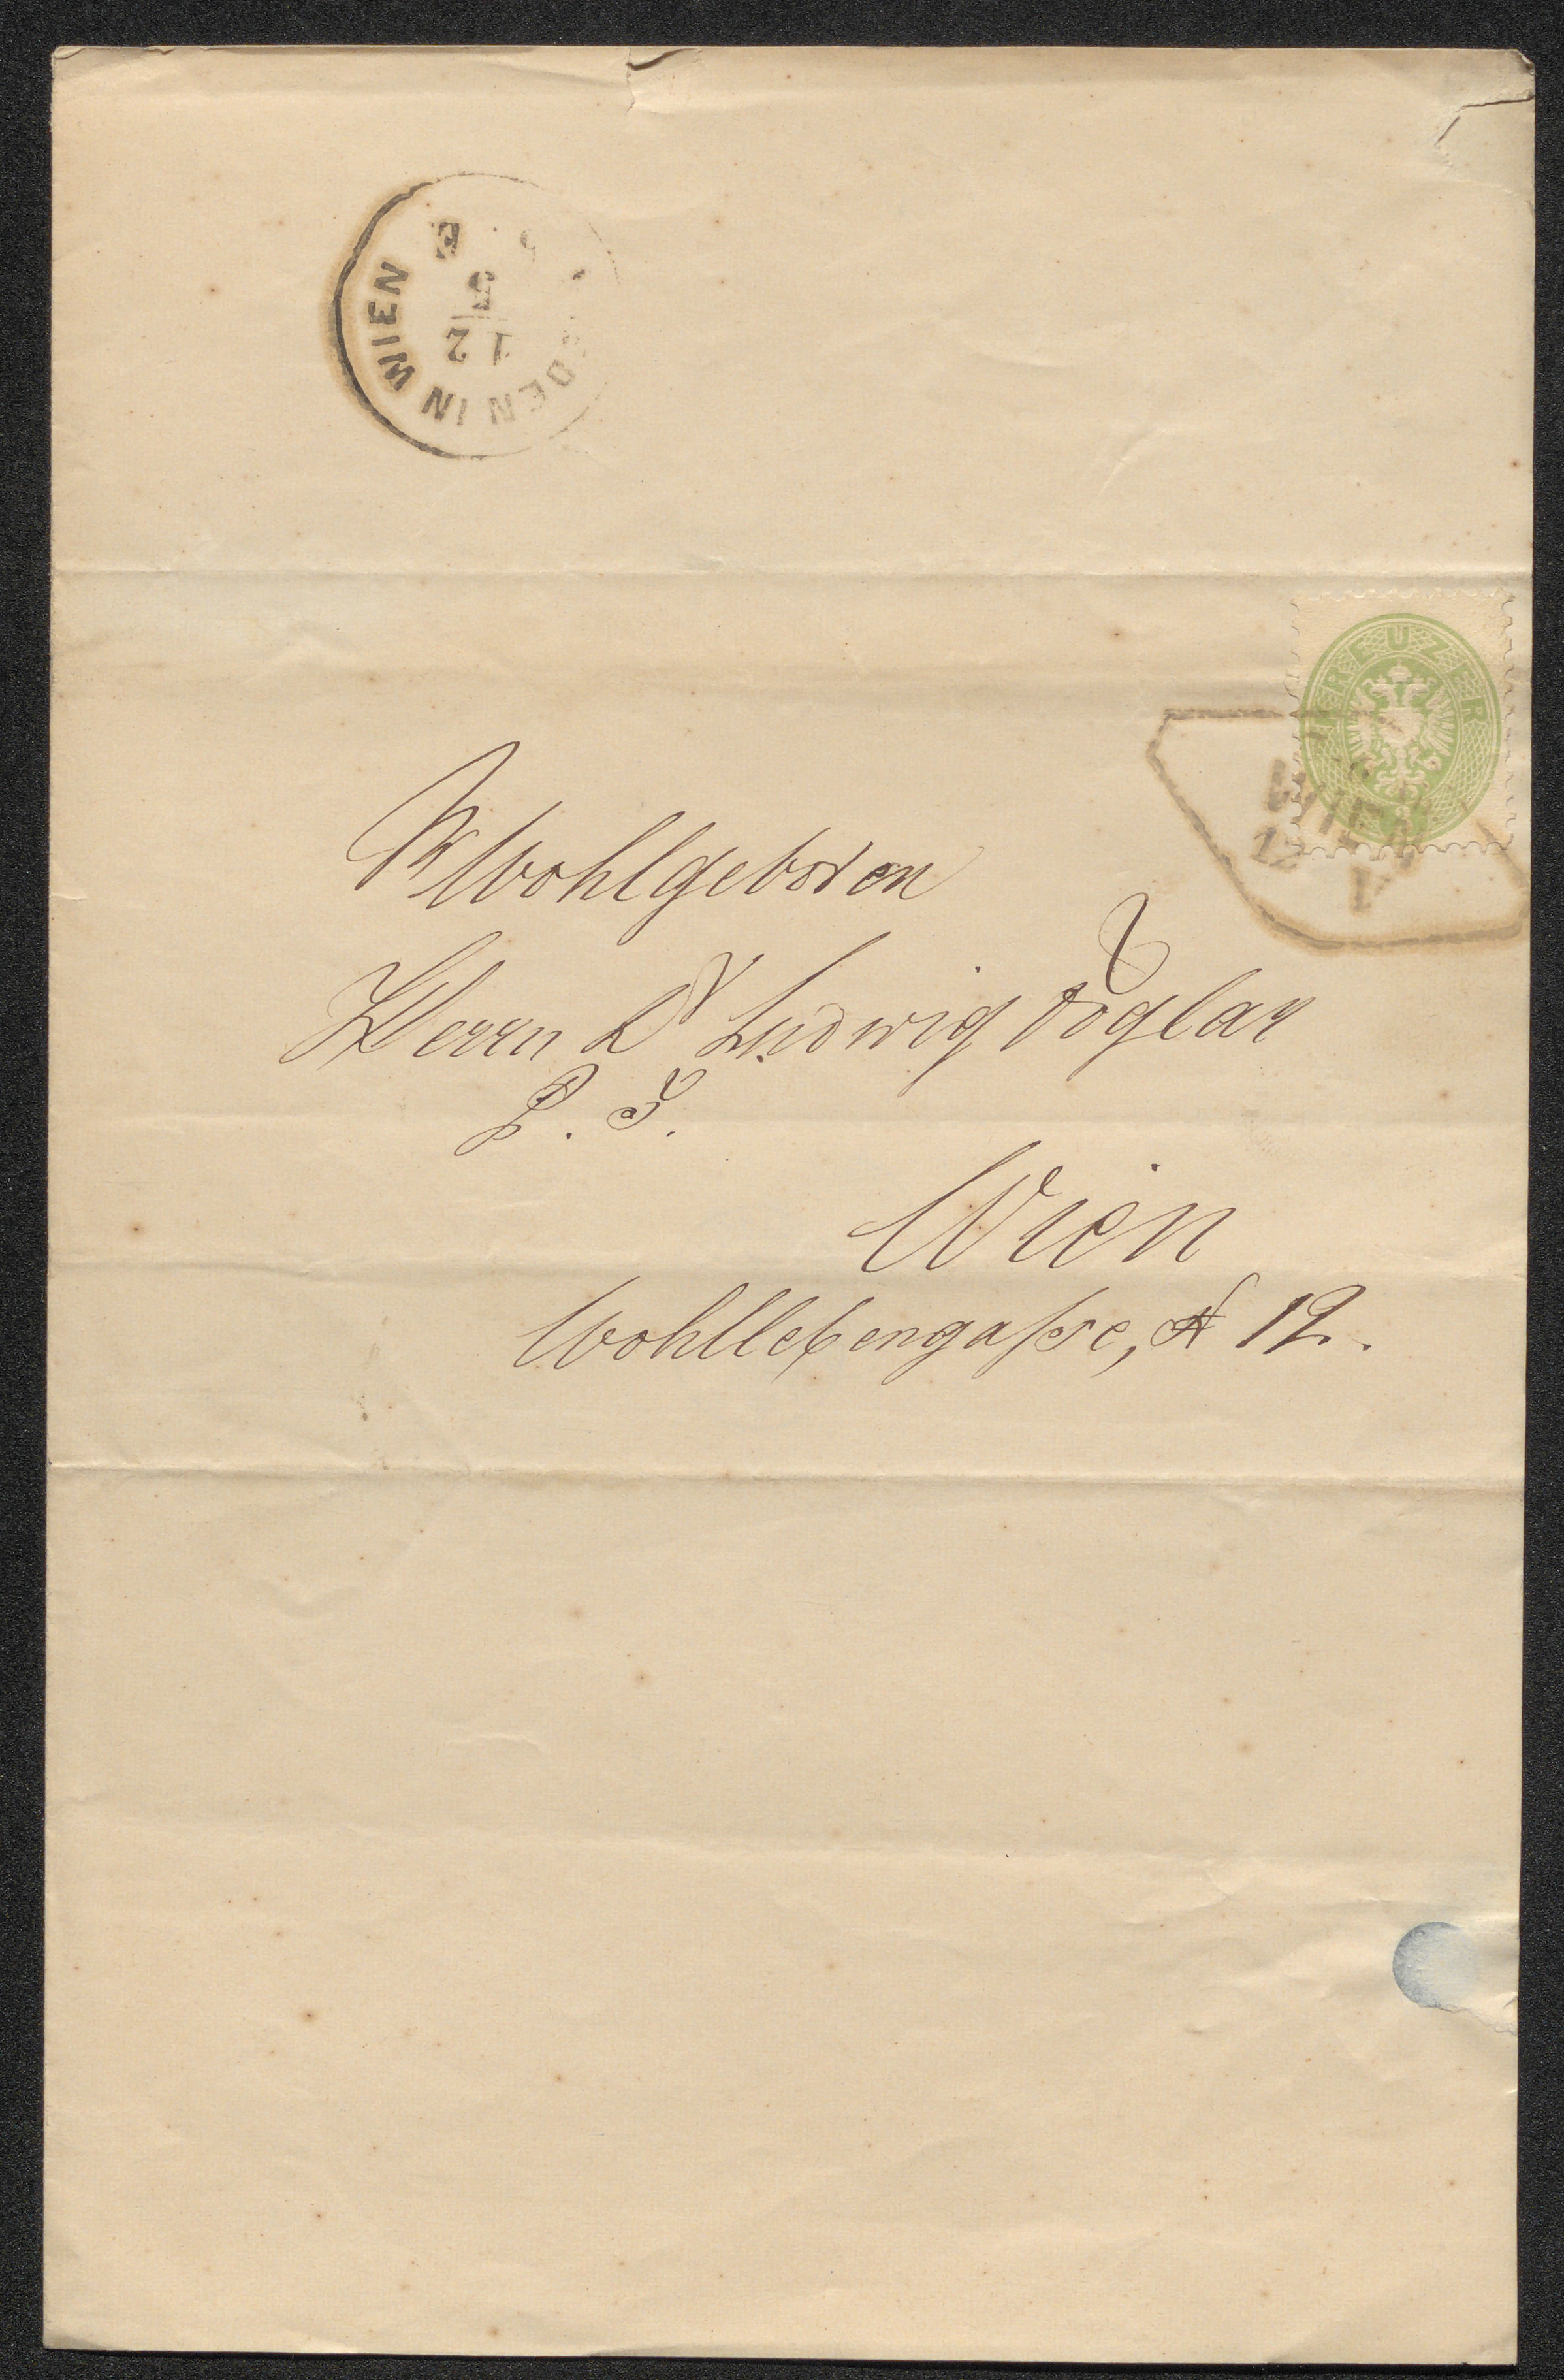 WIEDEN IN WIEN
12
5
KREUZER
WIEN
Wohlgeboren
Herrn Dr Ludwig Foglar
P. T.
Wien
Wohllebengaſse, № 12.